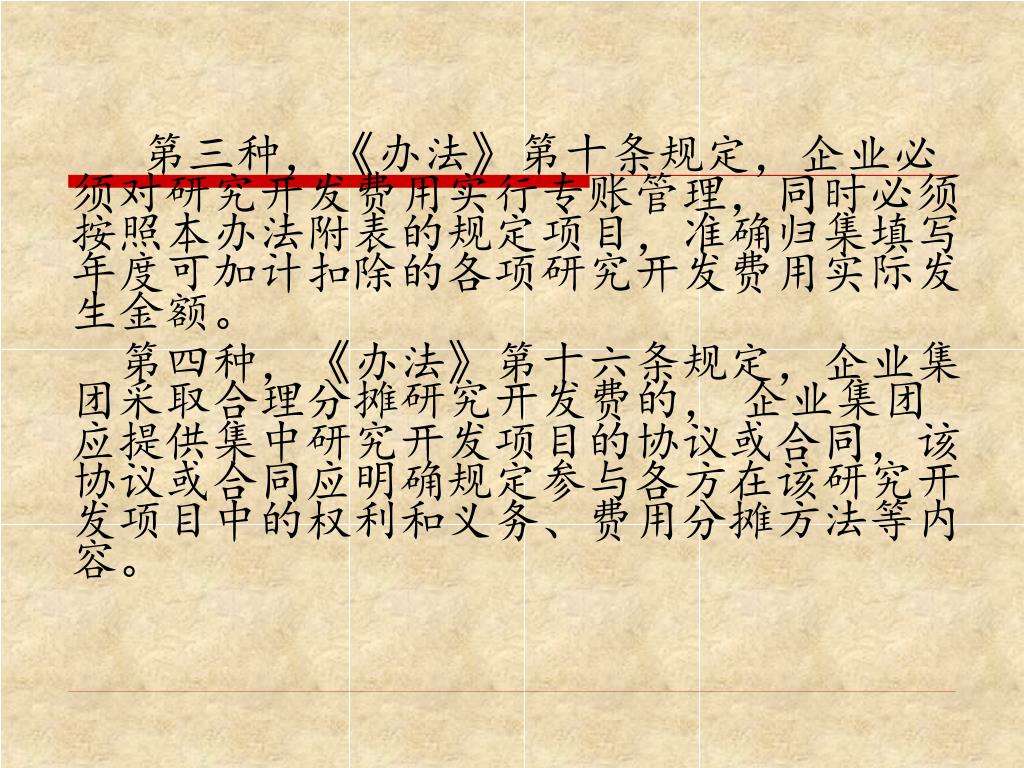 第三种，《办法》第十条规定，企业必
须对研究开发费用实行专账管理，同时必须
按照本办法附表的规定项目，准确归集填写
年度可加计扣除的各项研究开发费用实际发
生金额。
第四种，《办法》第十六条规定，企业集
团采取合理分摊研究开发费的， 企业集团
应提供集中研究开发项目的协议或合同，该
协议或合同应明确规定参与各方在该研究开
发项目中的权利和义务、费用分摊方法等内
容。